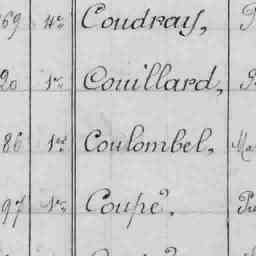 69 4e Coudray,
20 1e Couillard,
86 1er Coulombel, Ma
97 1e Coupé.